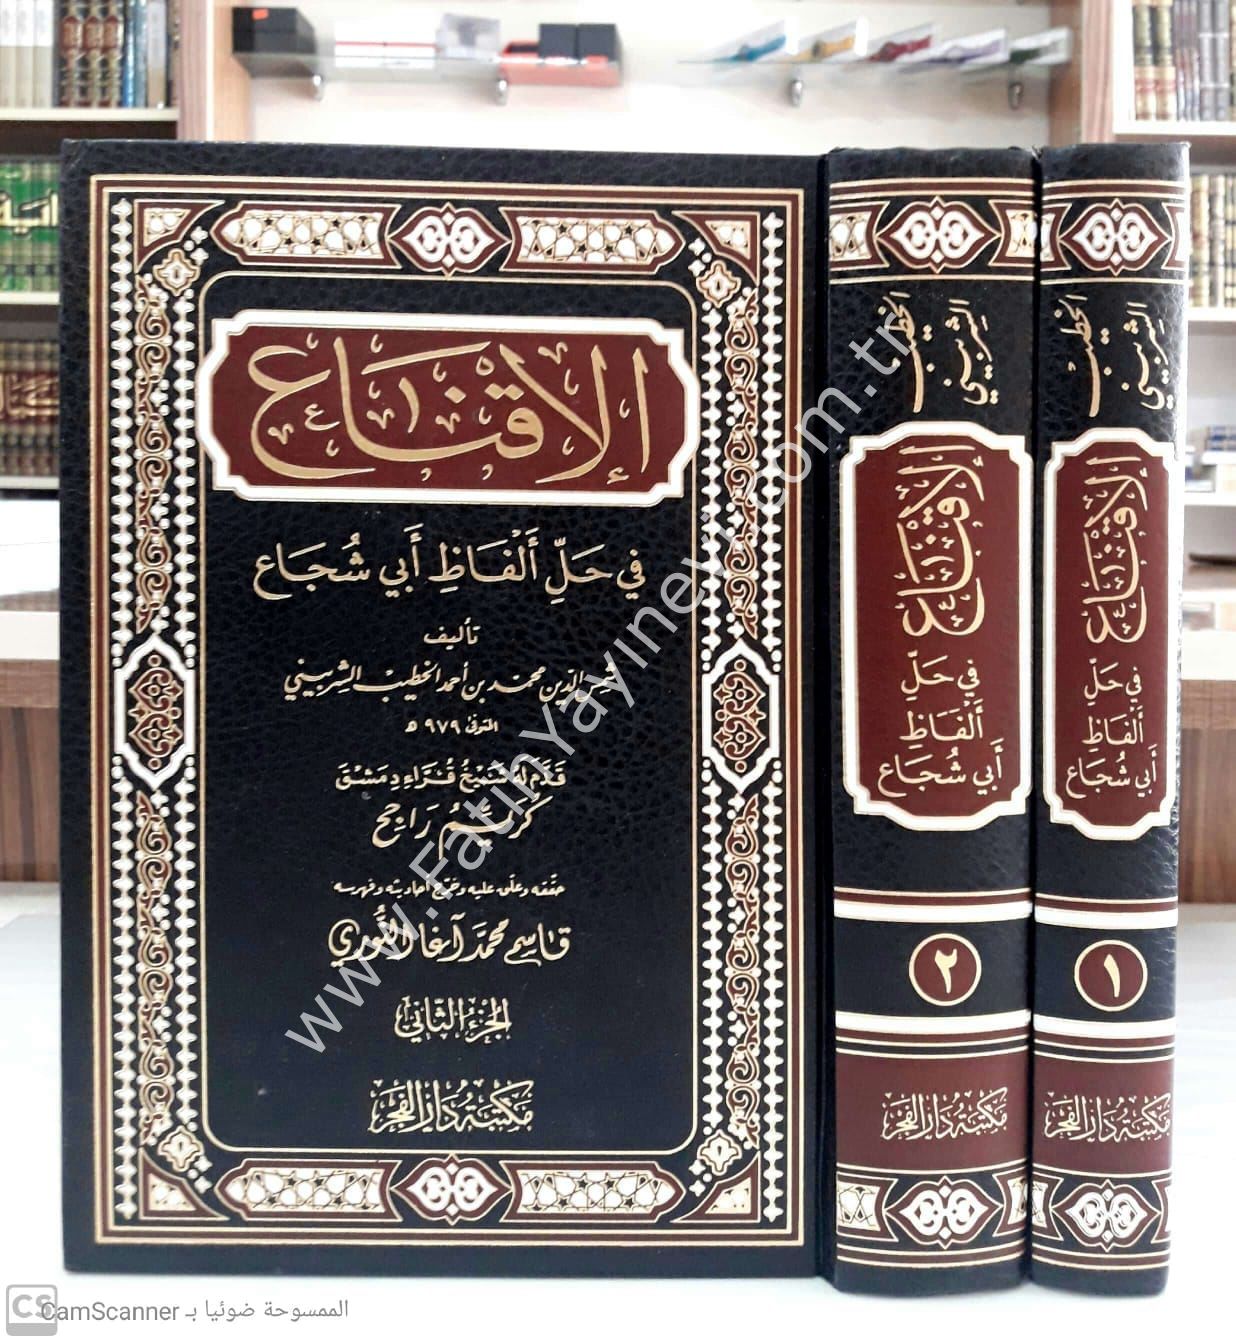 الإقناع
في حَلِّ أَلْفَاظِ أَبي شُجَاع
تأليف
شمس الدين محمد بن أحمد الخطيب الشربيني
المتوفى ٩٧٩ هـ
قدّم له شيخ قراء دمشق
كريّم راجح
حققه وعلق عليه وخرج أحاديثه وفهرسه
قاسم محمد آغا النوري
الجزء الثاني
مكتبة دار الفجر
الخطيب
الشربيني
الإقناع
في حَلِّ
أَلْفَاظِ
أَبي شُجَاع
٢
مكتبة دار الفجر
الخطيب
الشربيني
الإقناع
في حَلِّ
أَلْفَاظِ
أَبي شُجَاع
١
مكتبة دار الفجر
www.FatihYayınevi.com.tr
CS
الممسوحة ضوئيا بـ CamScanner